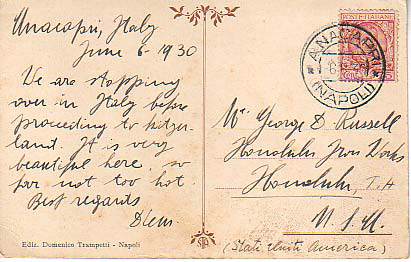 Anacapri, Italy
June 6 - 1930
We are stopping
over in Italy before
proceeding to Switzer-
land. It is very
beautiful here, so
far not too hot.
Best regards
Ediz. Domenico Trampetti - Napoli
POSTE ITALIANE
ANACAPRI
(NAPOLI)
Mr George D Russell
Honolulu Iron Works
Honolulu, T.H
U.S.A.
(Stati Uniti America)